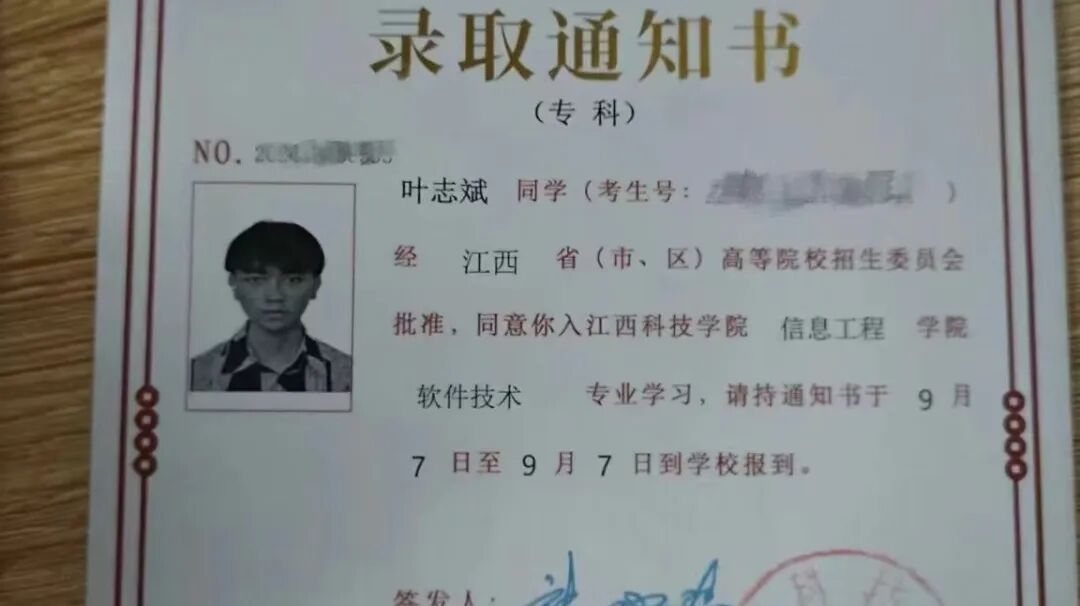 录取通知书
（专 科）
NO.
叶志斌 同学（考生号： ）
经 江西 省（市、区）高等院校招生委员会
批准，同意你入江西科技学院 信息工程 学院
软件技术 专业学习，请持通知书于 9 月
7 日至 9 月 7 日到学校报到。
签发人：